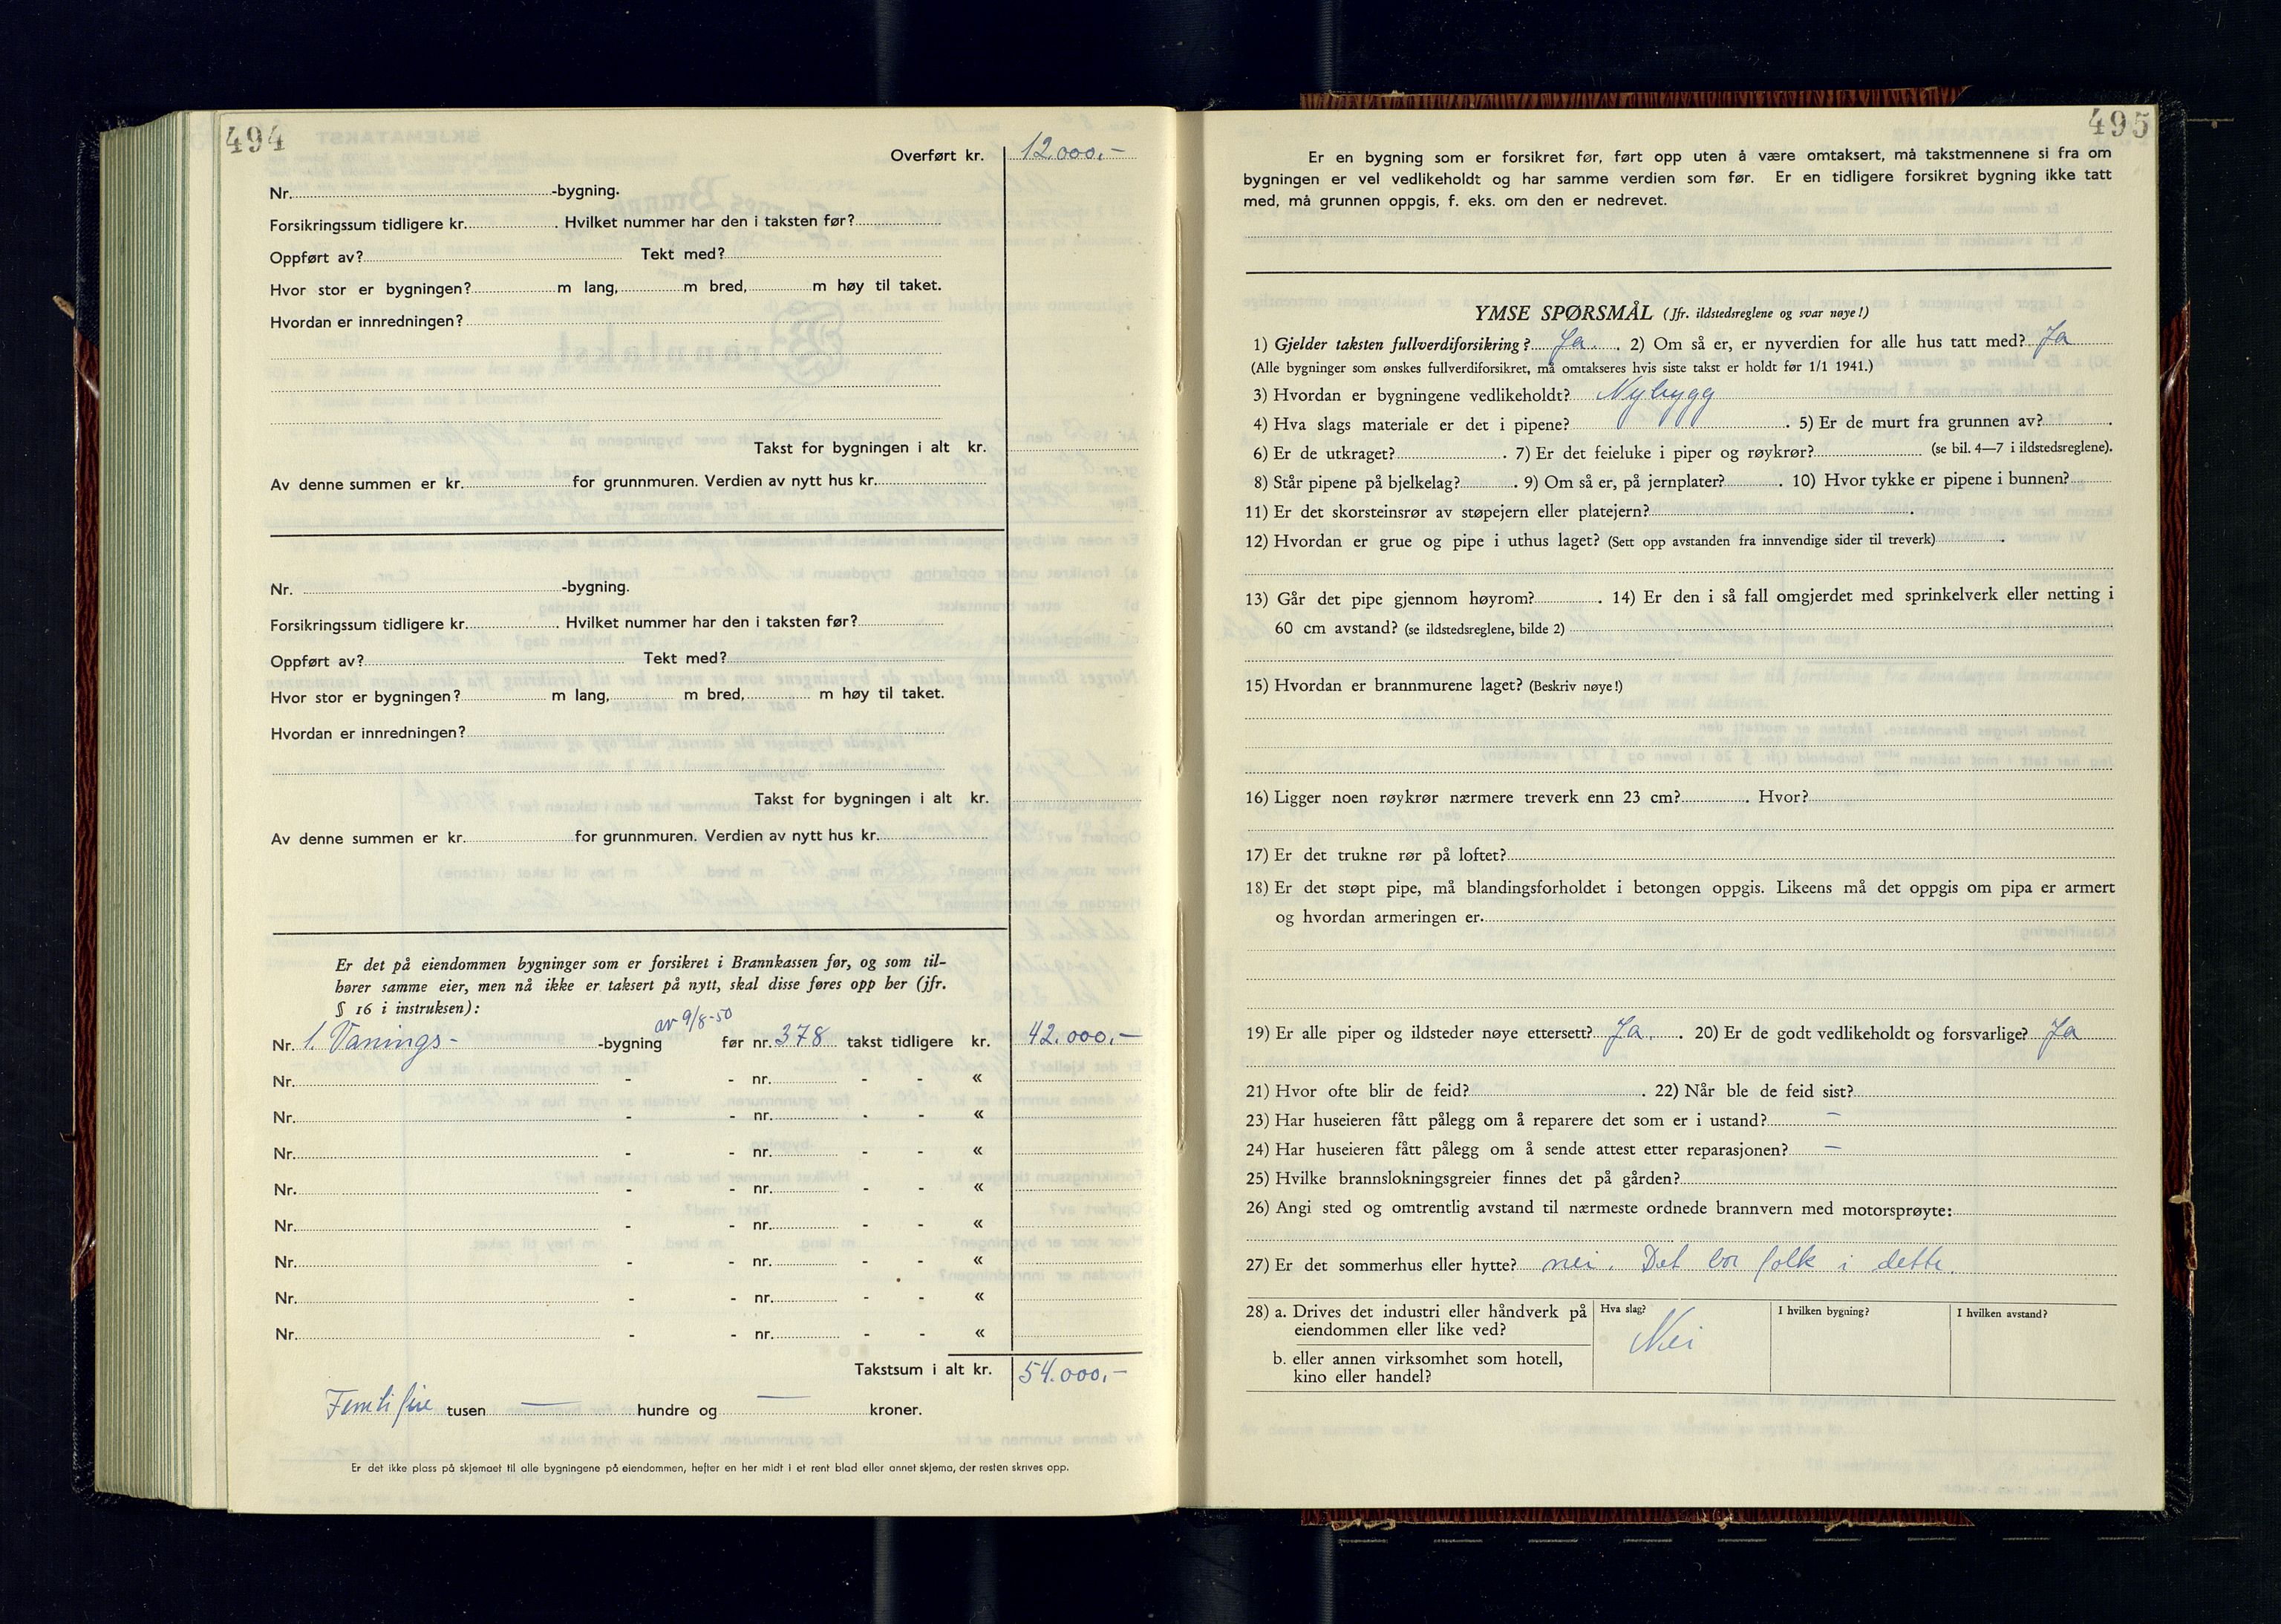 494
Overført kr. 12.000.-
Nr. -bygning.
Forsikringssum tidligere kr. . Hvilket nummer har den i taksten før?
Oppført av? Tekt med?
Hvor stor er bygningen? m lang, m bred, m høy til taket.
Hvordan er innredningen?
Takst for bygningen i alt kr.
Av denne summen er kr. for grunnmuren. Verdien av nytt hus kr.
Nr. -bygning.
Forsikringssum tidligere kr. . Hvilket nummer har den i taksten før?
Oppført av? Tekt med?
Hvor stor er bygningen? m lang, m bred, m høy til taket.
Hvordan er innredningen?
Takst for bygningen i alt kr.
Av denne summen er kr. for grunnmuren. Verdien av nytt hus kr.
Er det på eiendommen bygninger som er forsikret i Brannkassen før, og som til-
hører samme eier, men nå ikke er taksert på nytt, skal disse føres opp her (jfr.
§ 16 i instruksen):
av 9/8-50
Nr. 1. Vånings- -bygning før nr. 378 takst tidligere kr. 42.000.-
Nr. - - nr. - - «
Nr. - - nr. - - «
Nr. - - nr. - - «
Nr. - - nr. - - «
Nr. - - nr. - - «
Nr. - - nr. - - «
Nr. - - nr. - - «
Nr. - - nr. - - «
Takstsum i alt kr. 54.000.-
Femti fire tusen — hundre og — kroner.
Er det ikke plass på skjemaet til alle bygningene på eiendommen, hefter en her midt i et rent blad eller annet skjema, der resten skrives opp.
495
Er en bygning som er forsikret før, ført opp uten å være omtaksert, må takstmennene si fra om
bygningen er vel vedlikeholdt og har samme verdien som før. Er en tidligere forsikret bygning ikke tatt
med, må grunnen oppgis, f. eks. om den er nedrevet.
YMSE SPØRSMÅL (Jfr. ildstedsreglene og svar nøye!)
1) Gjelder taksten fullverdiforsikring? Ja. . 2) Om så er, er nyverdien for alle hus tatt med? Ja
(Alle bygninger som ønskes fullverdiforsikret, må omtakseres hvis siste takst er holdt før 1/1 1941.)
3) Hvordan er bygningene vedlikeholdt? Nybygg
4) Hva slags materiale er det i pipene? . 5) Er de murt fra grunnen av? .
6) Er de utkraget? . 7) Er det feieluke i piper og røykrør? (se bil. 4—7 i ildstedsreglene).
8) Står pipene på bjelkelag? . 9) Om så er, på jernplater? . 10) Hvor tykke er pipene i bunnen?
11) Er det skorsteinsrør av støpejern eller platejern? .
12) Hvordan er grue og pipe i uthus laget? (Sett opp avstanden fra innvendige sider til treverk) .
13) Går det pipe gjennom høyrom? . 14) Er den i så fall omgjerdet med sprinkelverk eller netting i
60 cm avstand? (se ildstedsreglene, bilde 2)
15) Hvordan er brannmurene laget? (Beskriv nøye!)
16) Ligger noen røykrør nærmere treverk enn 23 cm? . Hvor?
17) Er det trukne rør på loftet?
18) Er det støpt pipe, må blandingsforholdet i betongen oppgis. Likeens må det oppgis om pipa er armert
og hvordan armeringen er.
19) Er alle piper og ildsteder nøye ettersett? Ja. . 20) Er de godt vedlikeholdt og forsvarlige? Ja
21) Hvor ofte blir de feid? . 22) Når ble de feid sist?
23) Har huseieren fått pålegg om å reparere det som er i ustand? —
24) Har huseieren fått pålegg om å sende attest etter reparasjonen? —
25) Hvilke brannslokningsgreier finnes det på gården?
26) Angi sted og omtrentlig avstand til nærmeste ordnede brannvern med motorsprøyte:
27) Er det sommerhus eller hytte? nei. Det bor folk i dette.
28) a. Drives det industri eller håndverk på Hva slag? I hvilken bygning? I hvilken avstand?
eiendommen eller like ved? Nei
b. eller annen virksomhet som hotell,
kino eller handel?